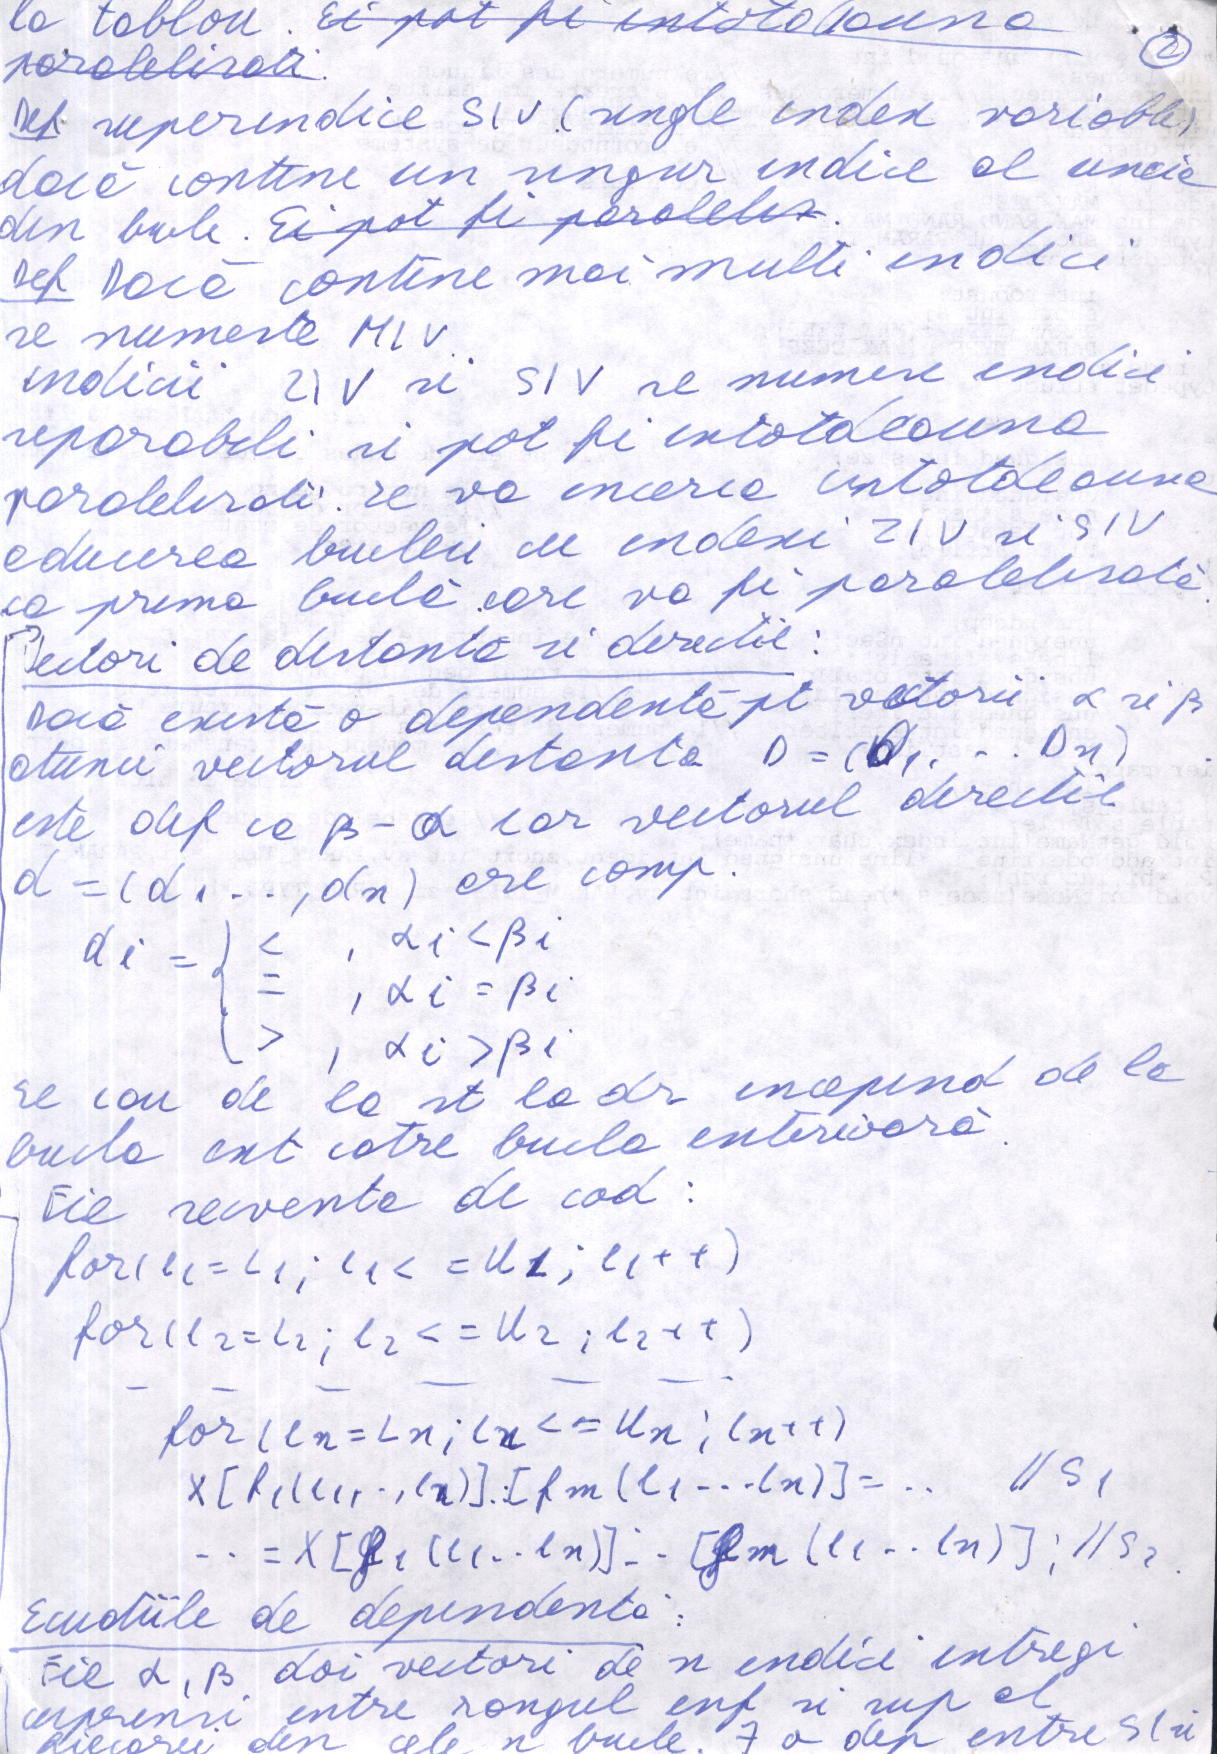 la tablou. Ei pot fi intotdeauna
paralelizati.
2
Def superindice SIV (single index variable)
dacă contine un singur indice al uneia
din bucle. Ei pot fi paraleliz.
Def Dacă contine mai multi indici
se numeste MIV.
indicii ZIV si SIV se numesc indici
separabili si pot fi intotdeauna
paralelizati. se va incerca intotdeauna
aducerea buclei cu indexi ZIV si SIV
ca prima buclă care va fi paralelizată.
Vectori de distanta si directie:
Dacă există o dependentă pt vectorii α si β
atunci vectorul distanta D = (D1, .. Dn)
este def ca β - α iar vectorul directie
d = (d1 ..., dn) are comp.
di = { < , αi < βi
= , αi = βi
> , αi > βi
se cau de la st la dr incepind de la
bucla ext catre bucla interioară.
Fie secventa de cod:
for(i1=L1; i1 <=U1; i1++)
for(i2=L2; i2 <=U2; i2++)
- - - - - - .
for(in=Ln; in <=Un; in++)
X[f1(i1, .., in)]..[fm(i1 ... in)]= .. //S1
.. = X[g1(i1 .. in)] .. [gm(i1 .. in)]; //S2.
Ecuatiile de dependentă:
Fie α, β doi vectori de n indici intregi
cuprinsi entre rangul inf si sup al
fiecarei din cele n bucle. ∃ o dep entre S1 si